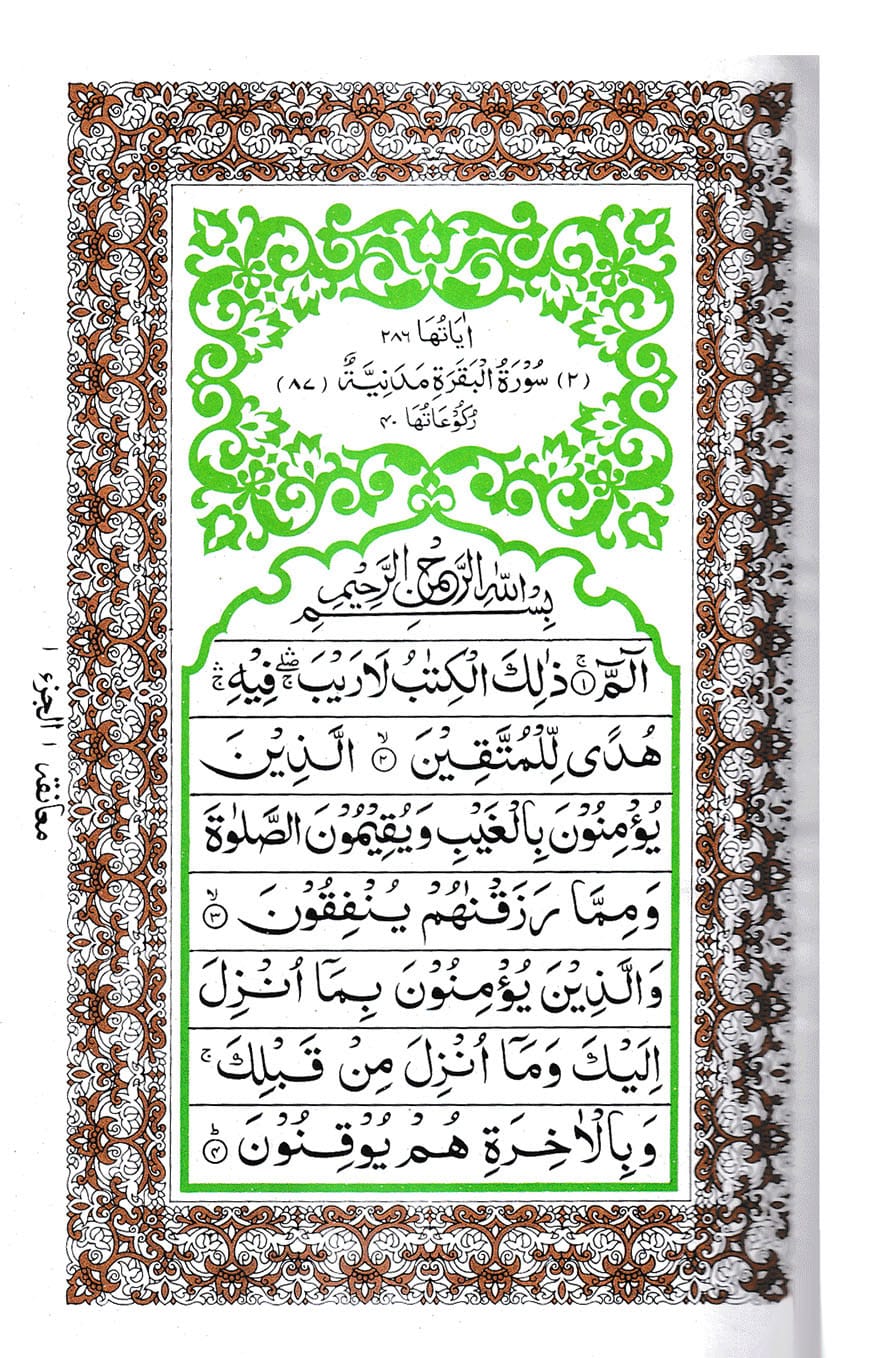 اٰيَاتُهَا ٢٨٦
(٢) سُوْرَةُ الْبَقَرَةِ مَدَنِيَّةٌ (٨٧)
رُكُوْعَاتُهَا ۴۰
بِسْمِ اللّٰهِ الرَّحْمٰنِ الرَّحِيْمِ
الٓمّٓ ۚ﴿١﴾ ذٰلِكَ الْكِتٰبُ لَا رَيْبَ ۛۖۚ فِيْهِ ۛۚ
هُدًى لِّلْمُتَّقِيْنَ ۙ﴿٢﴾ الَّذِيْنَ
يُؤْمِنُوْنَ بِالْغَيْبِ وَيُقِيْمُوْنَ الصَّلٰوةَ
وَمِمَّا رَزَقْنٰهُمْ يُنْفِقُوْنَ ۙ﴿٣﴾
وَالَّذِيْنَ يُؤْمِنُوْنَ بِمَآ اُنْزِلَ
اِلَيْكَ وَمَآ اُنْزِلَ مِنْ قَبْلِكَ ۚ
وَبِالْاٰخِرَةِ هُمْ يُوْقِنُوْنَ ؕ﴿۴﴾
معانقة ١ الجزء ١